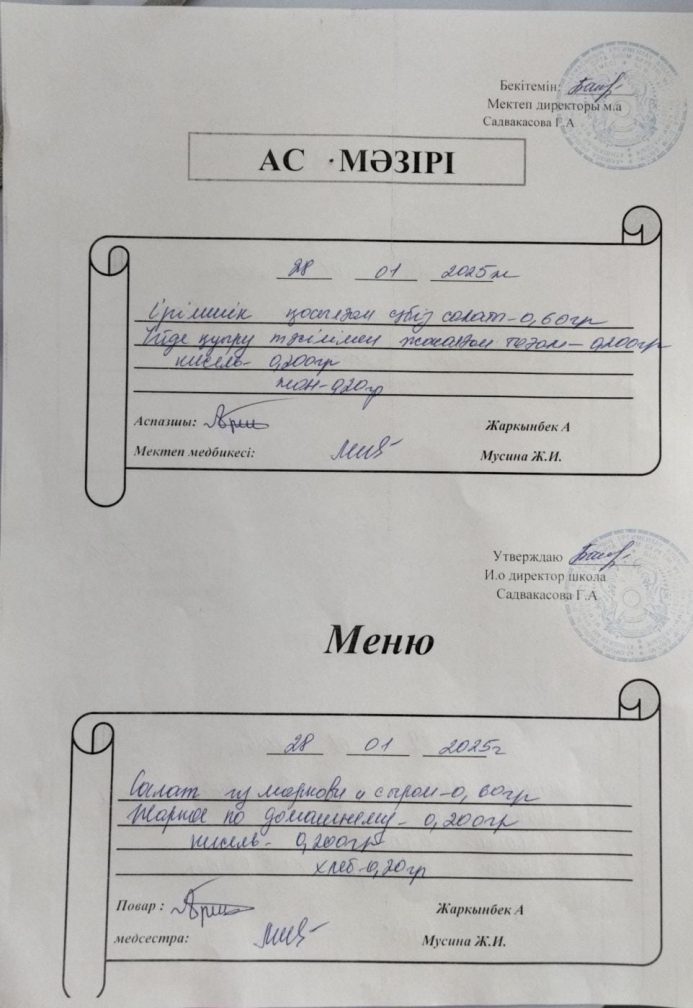 Бекітемін:
Мектеп директоры м.а
Садвакасова Г.А
АС МӘЗІРІ
28 01 2025ж
Ірімшік қосылған сәбіз салат-0,60гр
Үйде қуыру тәсілімен жасалған тағам-0,200гр
кисель- 0,200гр
нан-0,20гр
Аспазшы: Жаркынбек А
Мектеп медбикесі: Мусина Ж.И.
Утверждаю
И.о директор школа
Садвакасова Г.А
Меню
28 01 2025г
Салат из маркови и сыром-0,60гр
Жаркое по домашнему- 0,200гр
кисель- 0,200гр
хлеб-0,20гр
Повар : Жаркынбек А
медсестра: Мусина Ж.И.